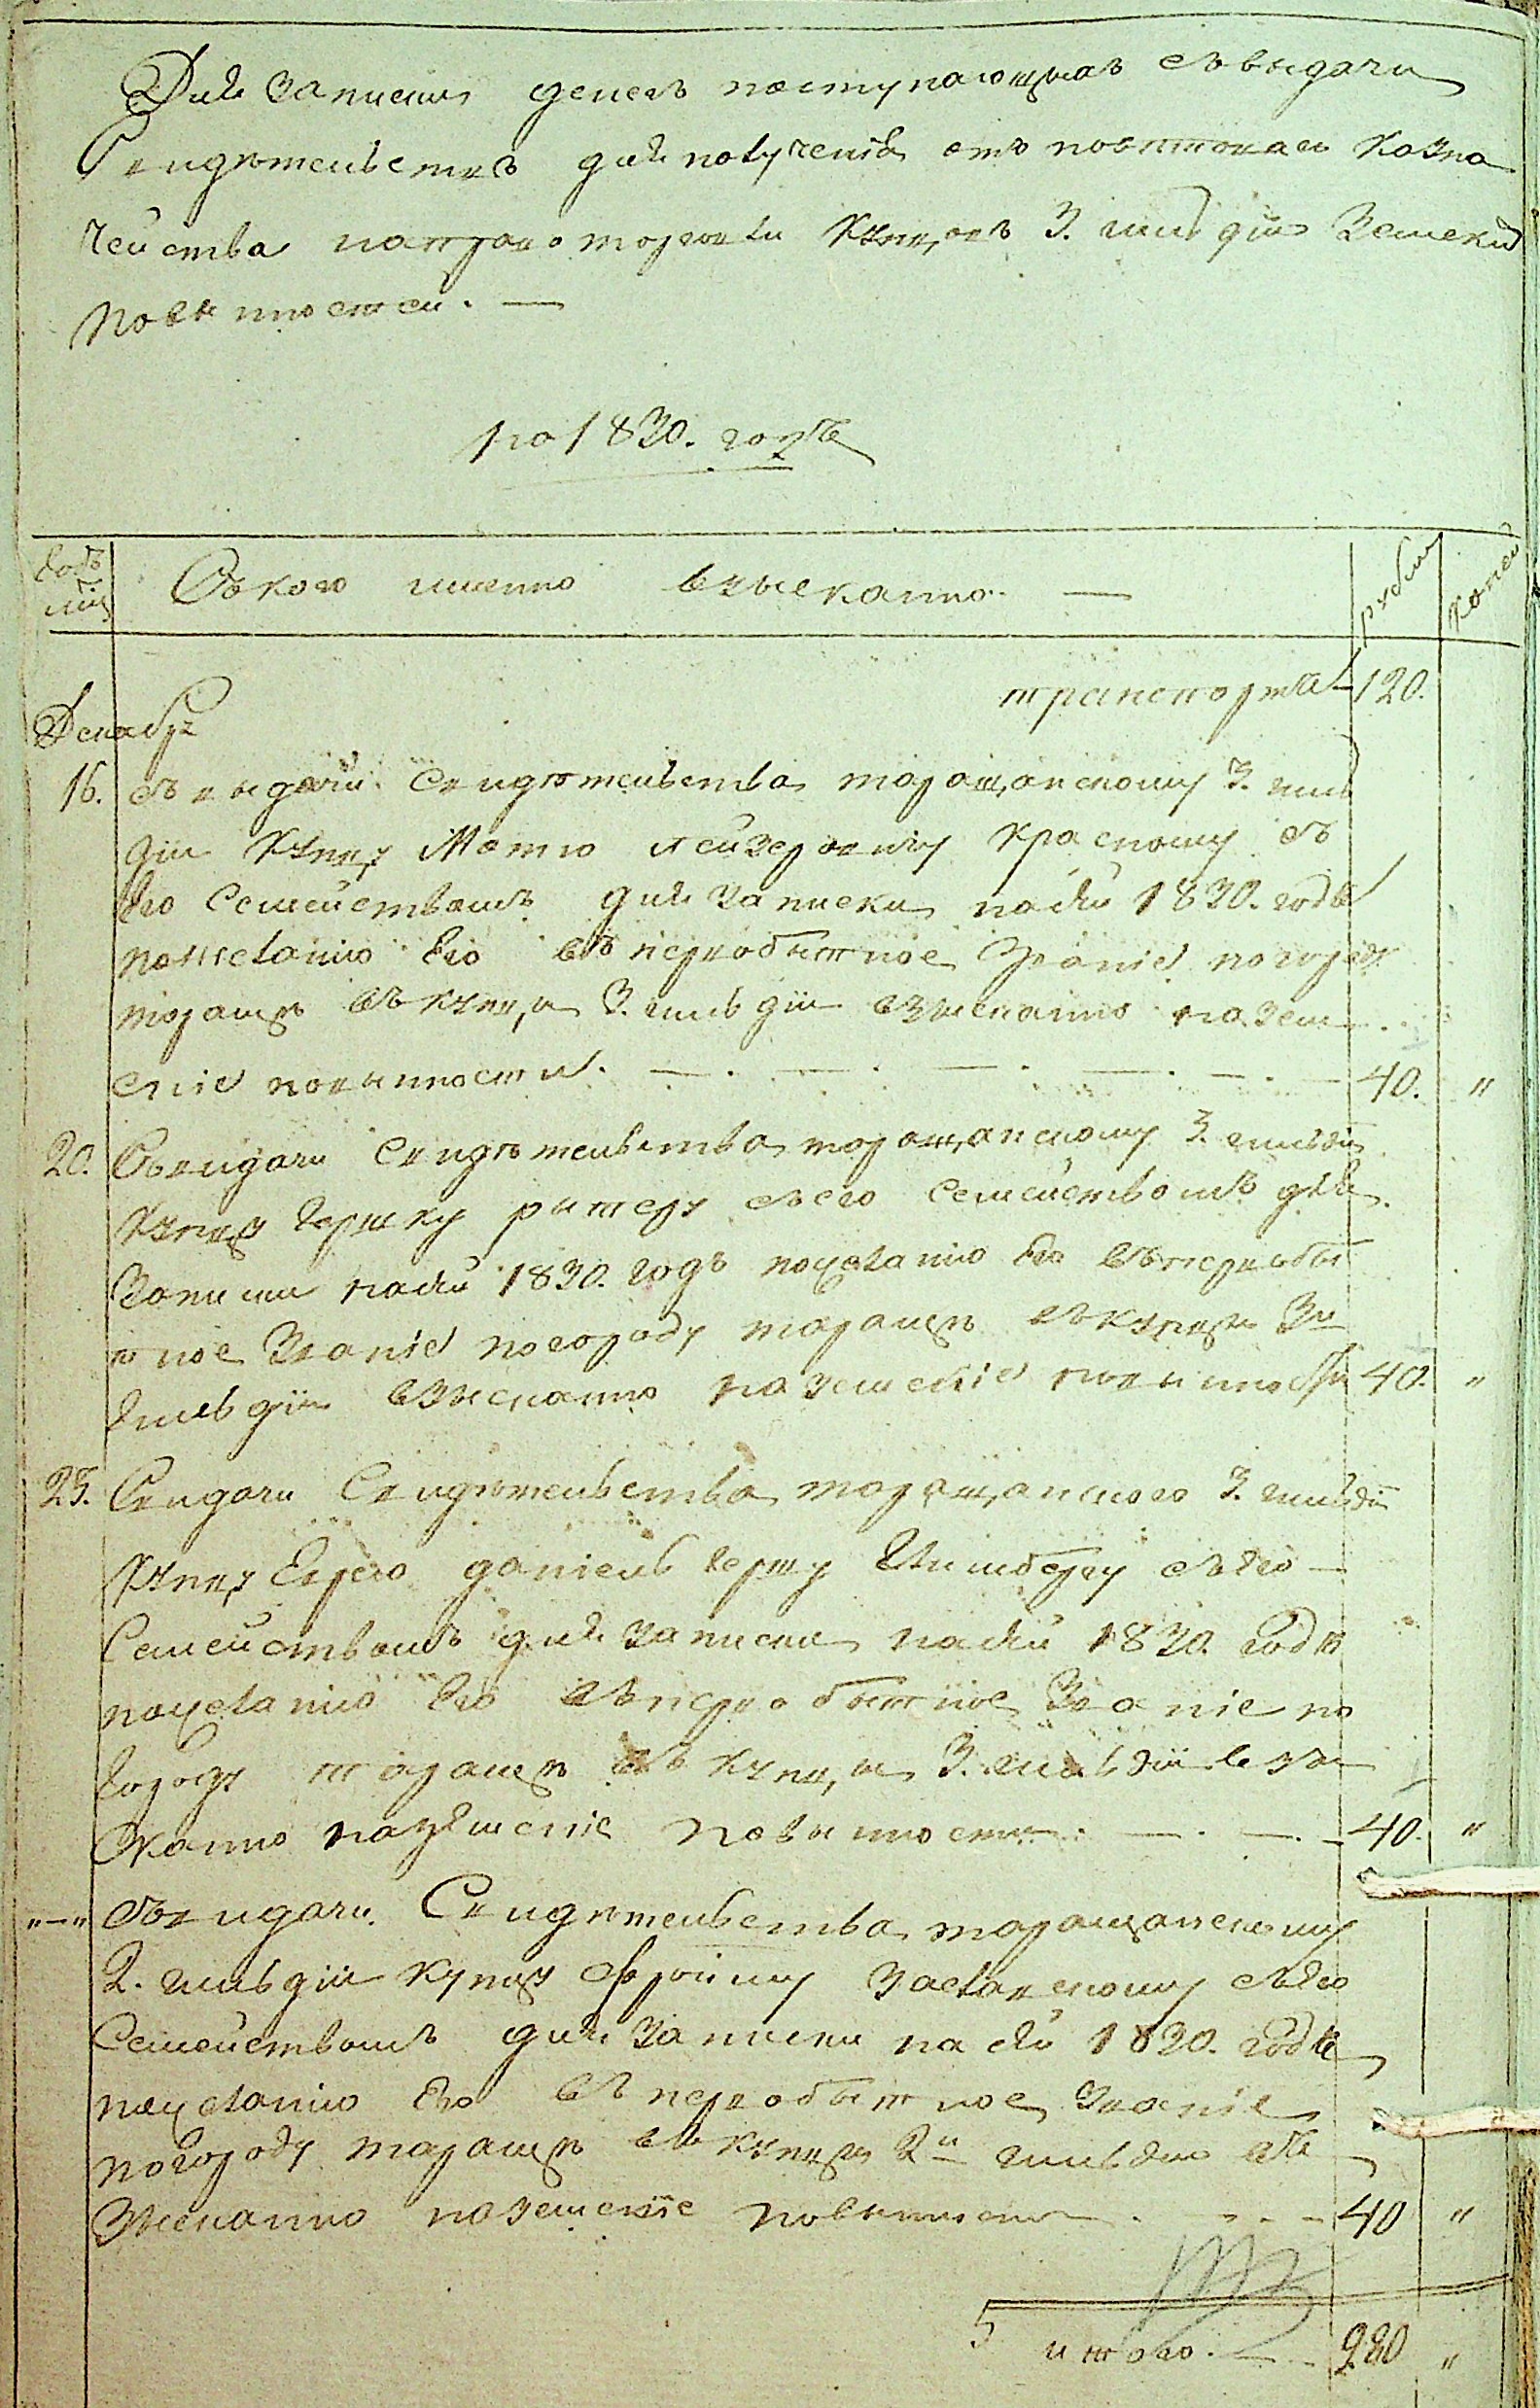 Для записки денегъ поступающихъ съ выдачи
Свидѣтельствъ для полученія отъ повѣтоваго Казна
чейства на право торговли Купцовъ 3. гильдіи Земскихъ
повынностей. —
на 1830. годъ
Годъ
Съ кого именно взыскано. —
рубли
Копей
транспортъ 120.
Декабрь
16. съ выдачи Свидѣтельства таращанскому 3. гиль
діи Купцу Мотю Лейзеровичу Красному съ
Его Семействомъ для записки на сей 1830. годъ
по желанію Его въ первобытное Званіе по городу
таращѣ въ купцы 3. гильдіи взысканно на зем
скіе повынности. — . — . — . — . — . — 40. "
20. Съ видачи Свидѣтельства таращанскому 3. гильдіи
Купцу Гершку ритеру съ его Семействомъ для
Записки на сей 1830. годъ по желанію Его въ первобы
тное Званіе по городу таращѣ въ купцы 3й
Гильдіи взысканно на земскіе повынности 40. "
23. С видачи Свидѣтельства таращанского 3. гильдіи
Купцу Еврею даніель Гершу Гинзбергу съ Его —
Семействомъ для записки на сей 1830. Годъ
по желанію Его въ первобытное Званіе по
Городу таращѣ въ купцы 3. гильдіи взы
сканно на земскіе повынности. — . — . — 40. "
"—" Съ видачи Свидѣтельства таращанскому
2. гильдіи Купцу Фроиму Заславскому съ Его
Семействомъ для Записки на сей 1830. Годъ
по желанію Его въ первобытное Званіе
по Городу таращѣ въ купцы 2й гильдіи въ
Зысканно на земскіе повынности . — . — 40 "
5 итого. — . 280 "